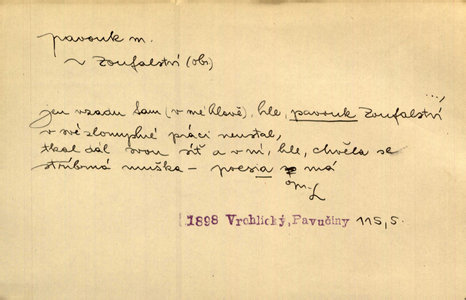 pavouk m.
~ Zoufalství (obr)
jen vzadu tam (v mé hlavě), hle, pavouk Zoufalství,
v své zlomyslné práci neustal,
tkal dál svou síť a v ní, hle, chvěla se
stříbrná muška – poesia má
1898 Vrchlický, Pavučiny 115,5.